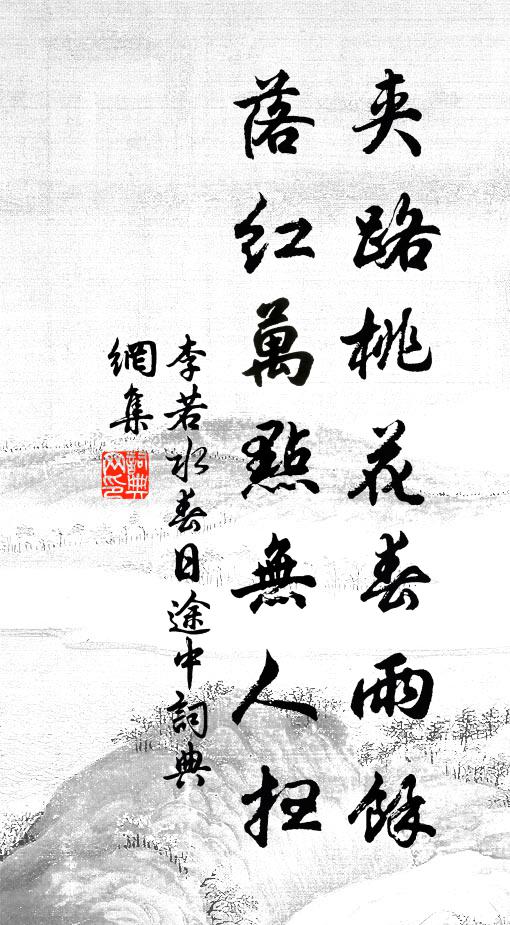 夾路桃花春雨餘
落紅萬點無人掃
李若水春日途中詞典
網集
詞典